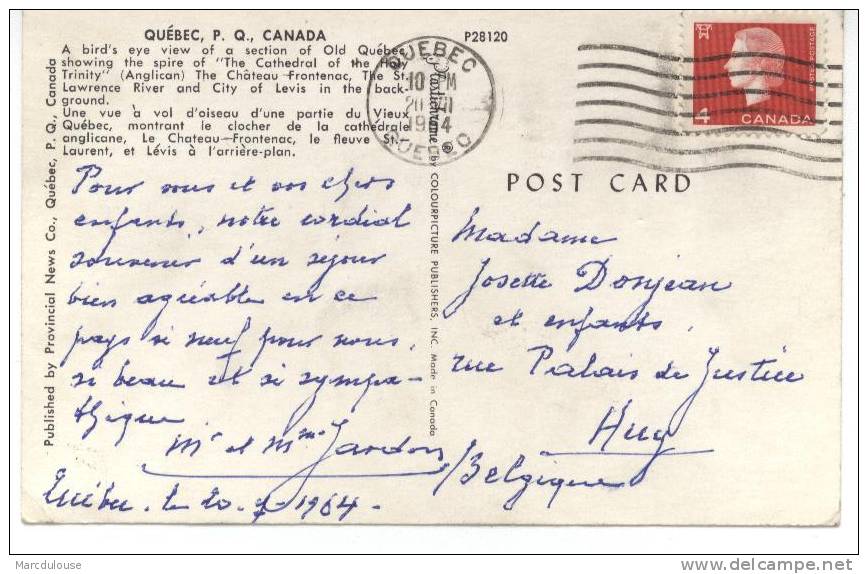 QUÉBEC, P. Q., CANADA
P28120
A bird's eye view of a section of Old Québec
showing the spire of "The Cathedral of the Holy
Trinity" (Anglican) The Château—Frontenac, The St.
Lawrence River and City of Levis in the back-
ground.
Une vue à vol d'oiseau d'une partie du Vieux
Québec, montrant le clocher de la cathédrale
anglicane, Le Chateau—Frontenac, le fleuve St-
Laurent, et Lévis à l'arrière-plan.
Published by Provincial News Co., Québec, P. Q., Canada
Plastichrome ® by COLOURPICTURE PUBLISHERS, INC. Made in Canada
QUEBEC
10 M
1964
QUEBEC
4
CANADA
POSTES POSTAGE
POST CARD
Pour vous et vos chers
enfants, notre cordial
souvenir d'un séjour
bien agréable en ce
pays si neuf pour nous,
si beau et si sympa-
thique
Mr et Mme Jardon
Québec. le 20. 7-1964.
Madame
Josette Donjean
et enfants,
rue Palais de Justice
Huy
Belgique
Marcdulouse
delcampe.net